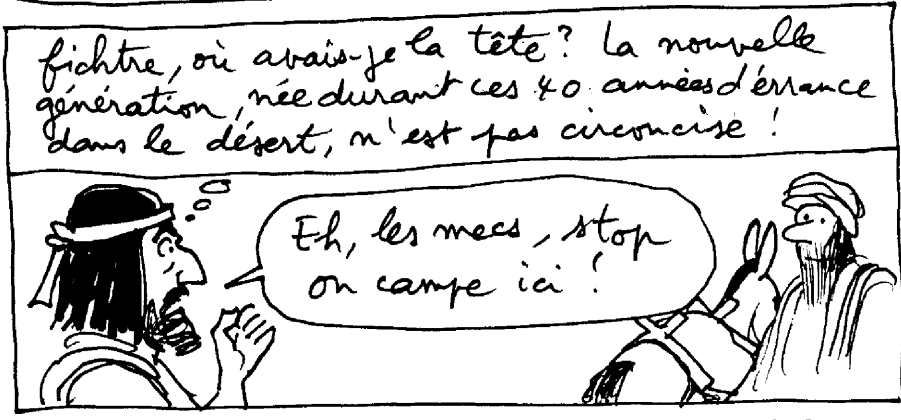 fichtre, où avais-je la tête? La nouvelle
génération, née durant ces 40 années d'érrance
dans le désert, n'est pas circoncise !
Eh, les mecs, stop
on campe ici !